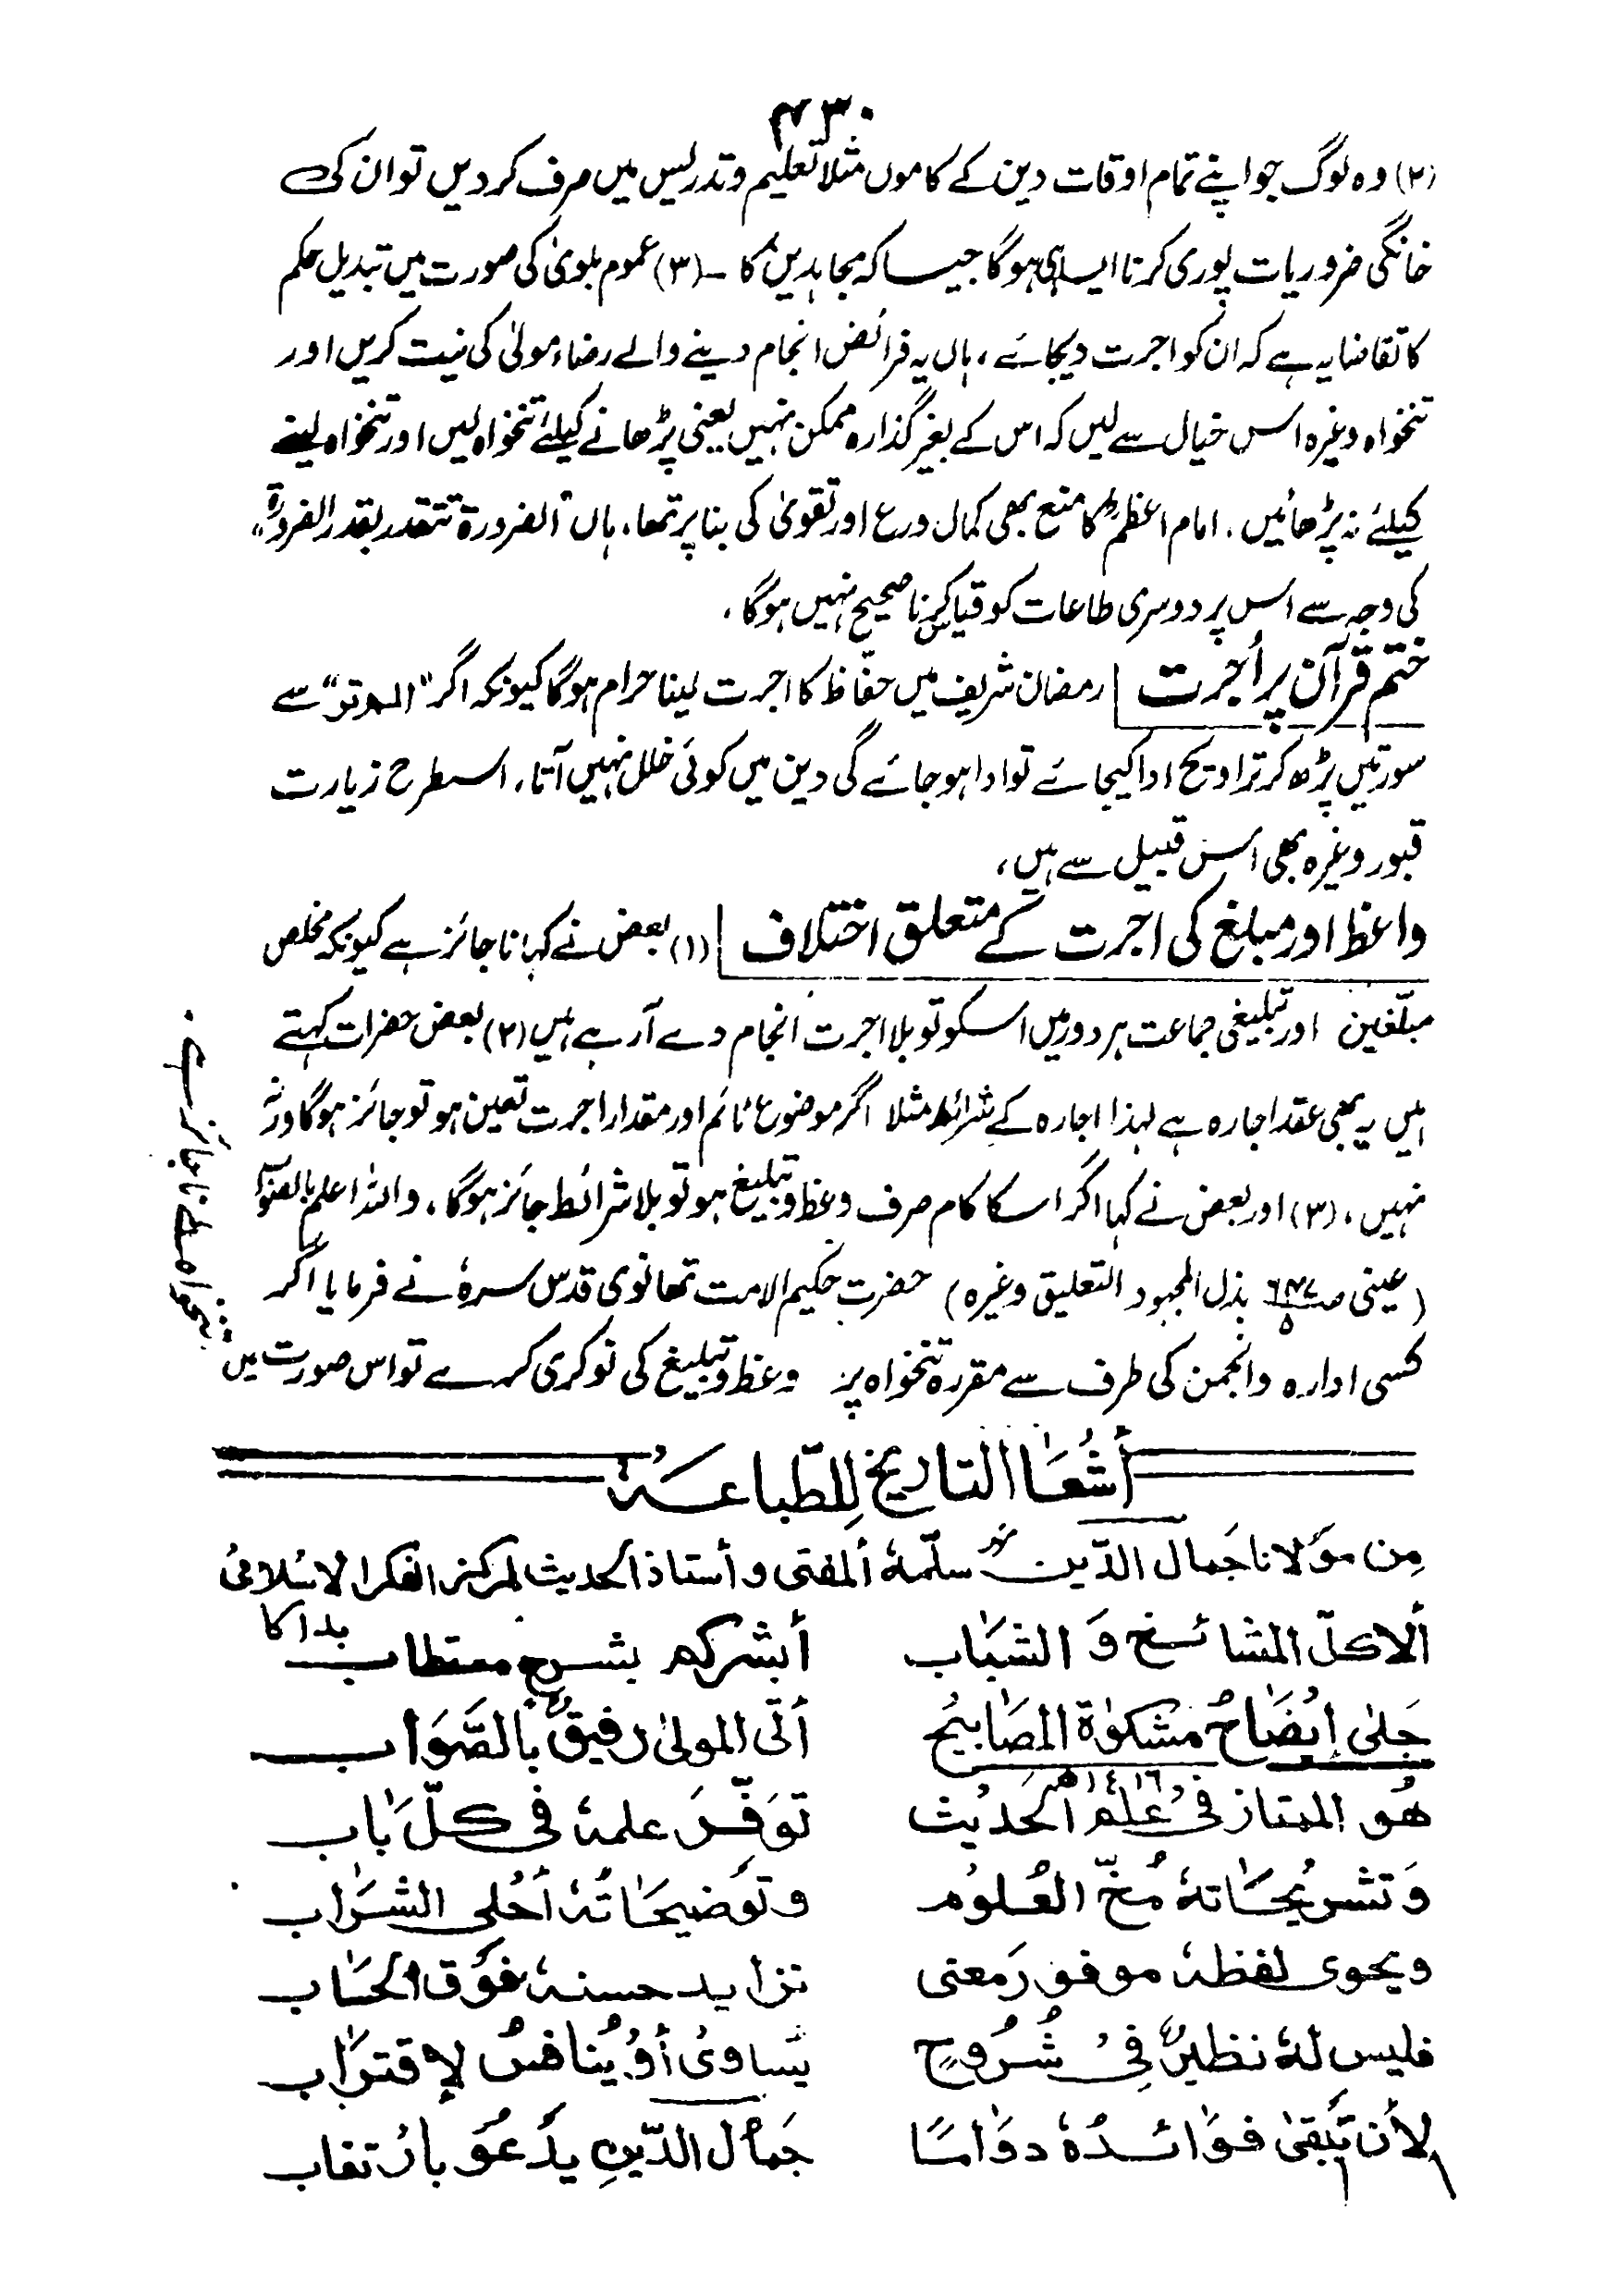 ۴۳۰
(۲) وہ لوگ جو اپنے تمام اوقات دین کے کاموں مثلا تعلیم و تدریس میں صرف کردیں تو ان کی
خانگی ضروریات پوری کرنا ایسا ہی ہوگا جیسا کہ مجاہدین کا ـ (۳) عموم بلویٰ کی صورت میں تبدیل حکم
کا تقاضا یہ ہے کہ ان کو اجرت دیجائے ، ہاں یہ فرائض انجام دینے والے رضاء مولیٰ کی نیت کریں اور
تنخواہ وغیرہ اس خیال سے لیں کہ اس کے بغیر گذارہ ممکن نہیں یعنی پڑھانے کیلئے تنخواہ لیں اور تنخواہ لینے
کیلئے نہ پڑھائیں ۔ امام اعظمؒ کا منع بھی کمال ورع اور تقویٰ کی بنا پر تھا ، ہاں "الضرورة تتقدر بقدر الضرورة"
کی وجہ سے اس پر دوسری طاعات کو قیاس کرنا صحیح نہیں ہوگا ،
ختم قرآن پر اُجرت | رمضان شریف میں حفّاظ کا اجرت لینا حرام ہوگا کیونکہ اگر "الم تر" سے
سورتیں پڑھ کر تراویح ادا کیجائے تو ادا ہو جائے گی دین میں کوئی خلل نہیں آتا ، اسطرح زیارت
قبور وغیرہ بھی اس قبیل سے ہیں ،
واعظ اور مبلغ کی اجرت کے متعلق اختلاف | (۱) بعض نے کہا ناجائز ہے کیونکہ مخلص
مبلّغین اور تبلیغی جماعت ہر دور میں اسکو تو بلا اجرت انجام دے آرہے ہیں (۲) بعض حضرات کہتے
ہیں یہ بھی عقد اجارہ ہے لہذا اجارہ کے شرائط مثلا اگر موضوع ٹائم اور مقدار اجرت تعین ہو تو جائز ہوگا ورنہ
نہیں ، (۳) اور بعض نے کہا اگر اسکا کام صرف وعظ و تبلیغ ہو تو بلا شرائط جائز ہوگا ، واللہ اعلم بالصوّاب
(عینی صـ ۶۴۷/۵ بذل المجہود التعلیق وغیرہ) حضرت حکیم الامت تھانوی قدس سرہٗ نے فرمایا اگر
کسی ادارہ وانجمن کی طرف سے مقررہ تنخواہ پر وعظ و تبلیغ کی نوکری کرے تو اس صورت میں
تنخواہ لے نا جائز ہے ۔
أشْعَا التاريخ لِلطّباعـة
مِن مَوْلانا جَمال الدّين سلّمهٗ ألمفتى و أستاذ الحديث لمركز الفكر الاسْلامىْ
بدا کا
ألا كلّ المشائـخ وَ الشبَاب أبشركم بشرح مستطاب
جَلىٰ إيْضَاحُ مشكوٰة المصَابيحْ أتى المولىٰ رفيقٌ بالصَّوَاب
١٤١٦ھ
هُو الممتاز فىْ علم الحَديْث توَفّرَ علمهٗ فى كلّ بَاب
وَ تشريْحَاتهٗ مُخّ العُلوْم و توْضيحَاتُهٗ أحْلى الشرَاب
ويحوى لفظهٗ موفور مَعنى تزايد حسنهٗ فوْق الحسَاب
فليس لهٗ نظيرٌ فِىْ شُرُوحٍ يُساوىْ أوْ يُنافسُ لإقترَاب
لأن تبْقىٰ فوَائدُهٗ دوَامًا جَمالُ الدّينِ يدْعُوْ بارْتغاب